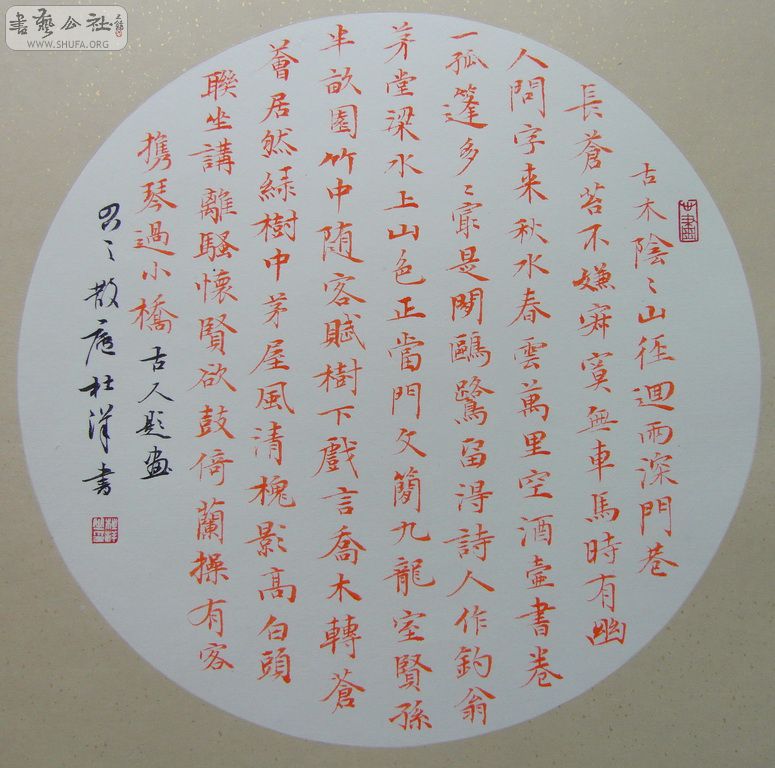 書藝公社
WWW.SHUFA.ORG
古木陰〻山徑迴雨深門巷
長蒼苔不嫌寂寞無車馬時有幽
人問字来秋水春雲萬里空酒壺書卷
一孤篷多〻㝡是閒鷗鷺留得詩人作釣翁
茅堂梁水上山色正當門文簡九龍室賢孫
半畝園竹中随客賦樹下戲言喬木轉蒼
薈居然綠樹中茅屋風清槐影高白頭
聯坐講離騷懷賢欲鼓倚蘭操有客
携琴過小橋 古人題畫
散庐杜洋書